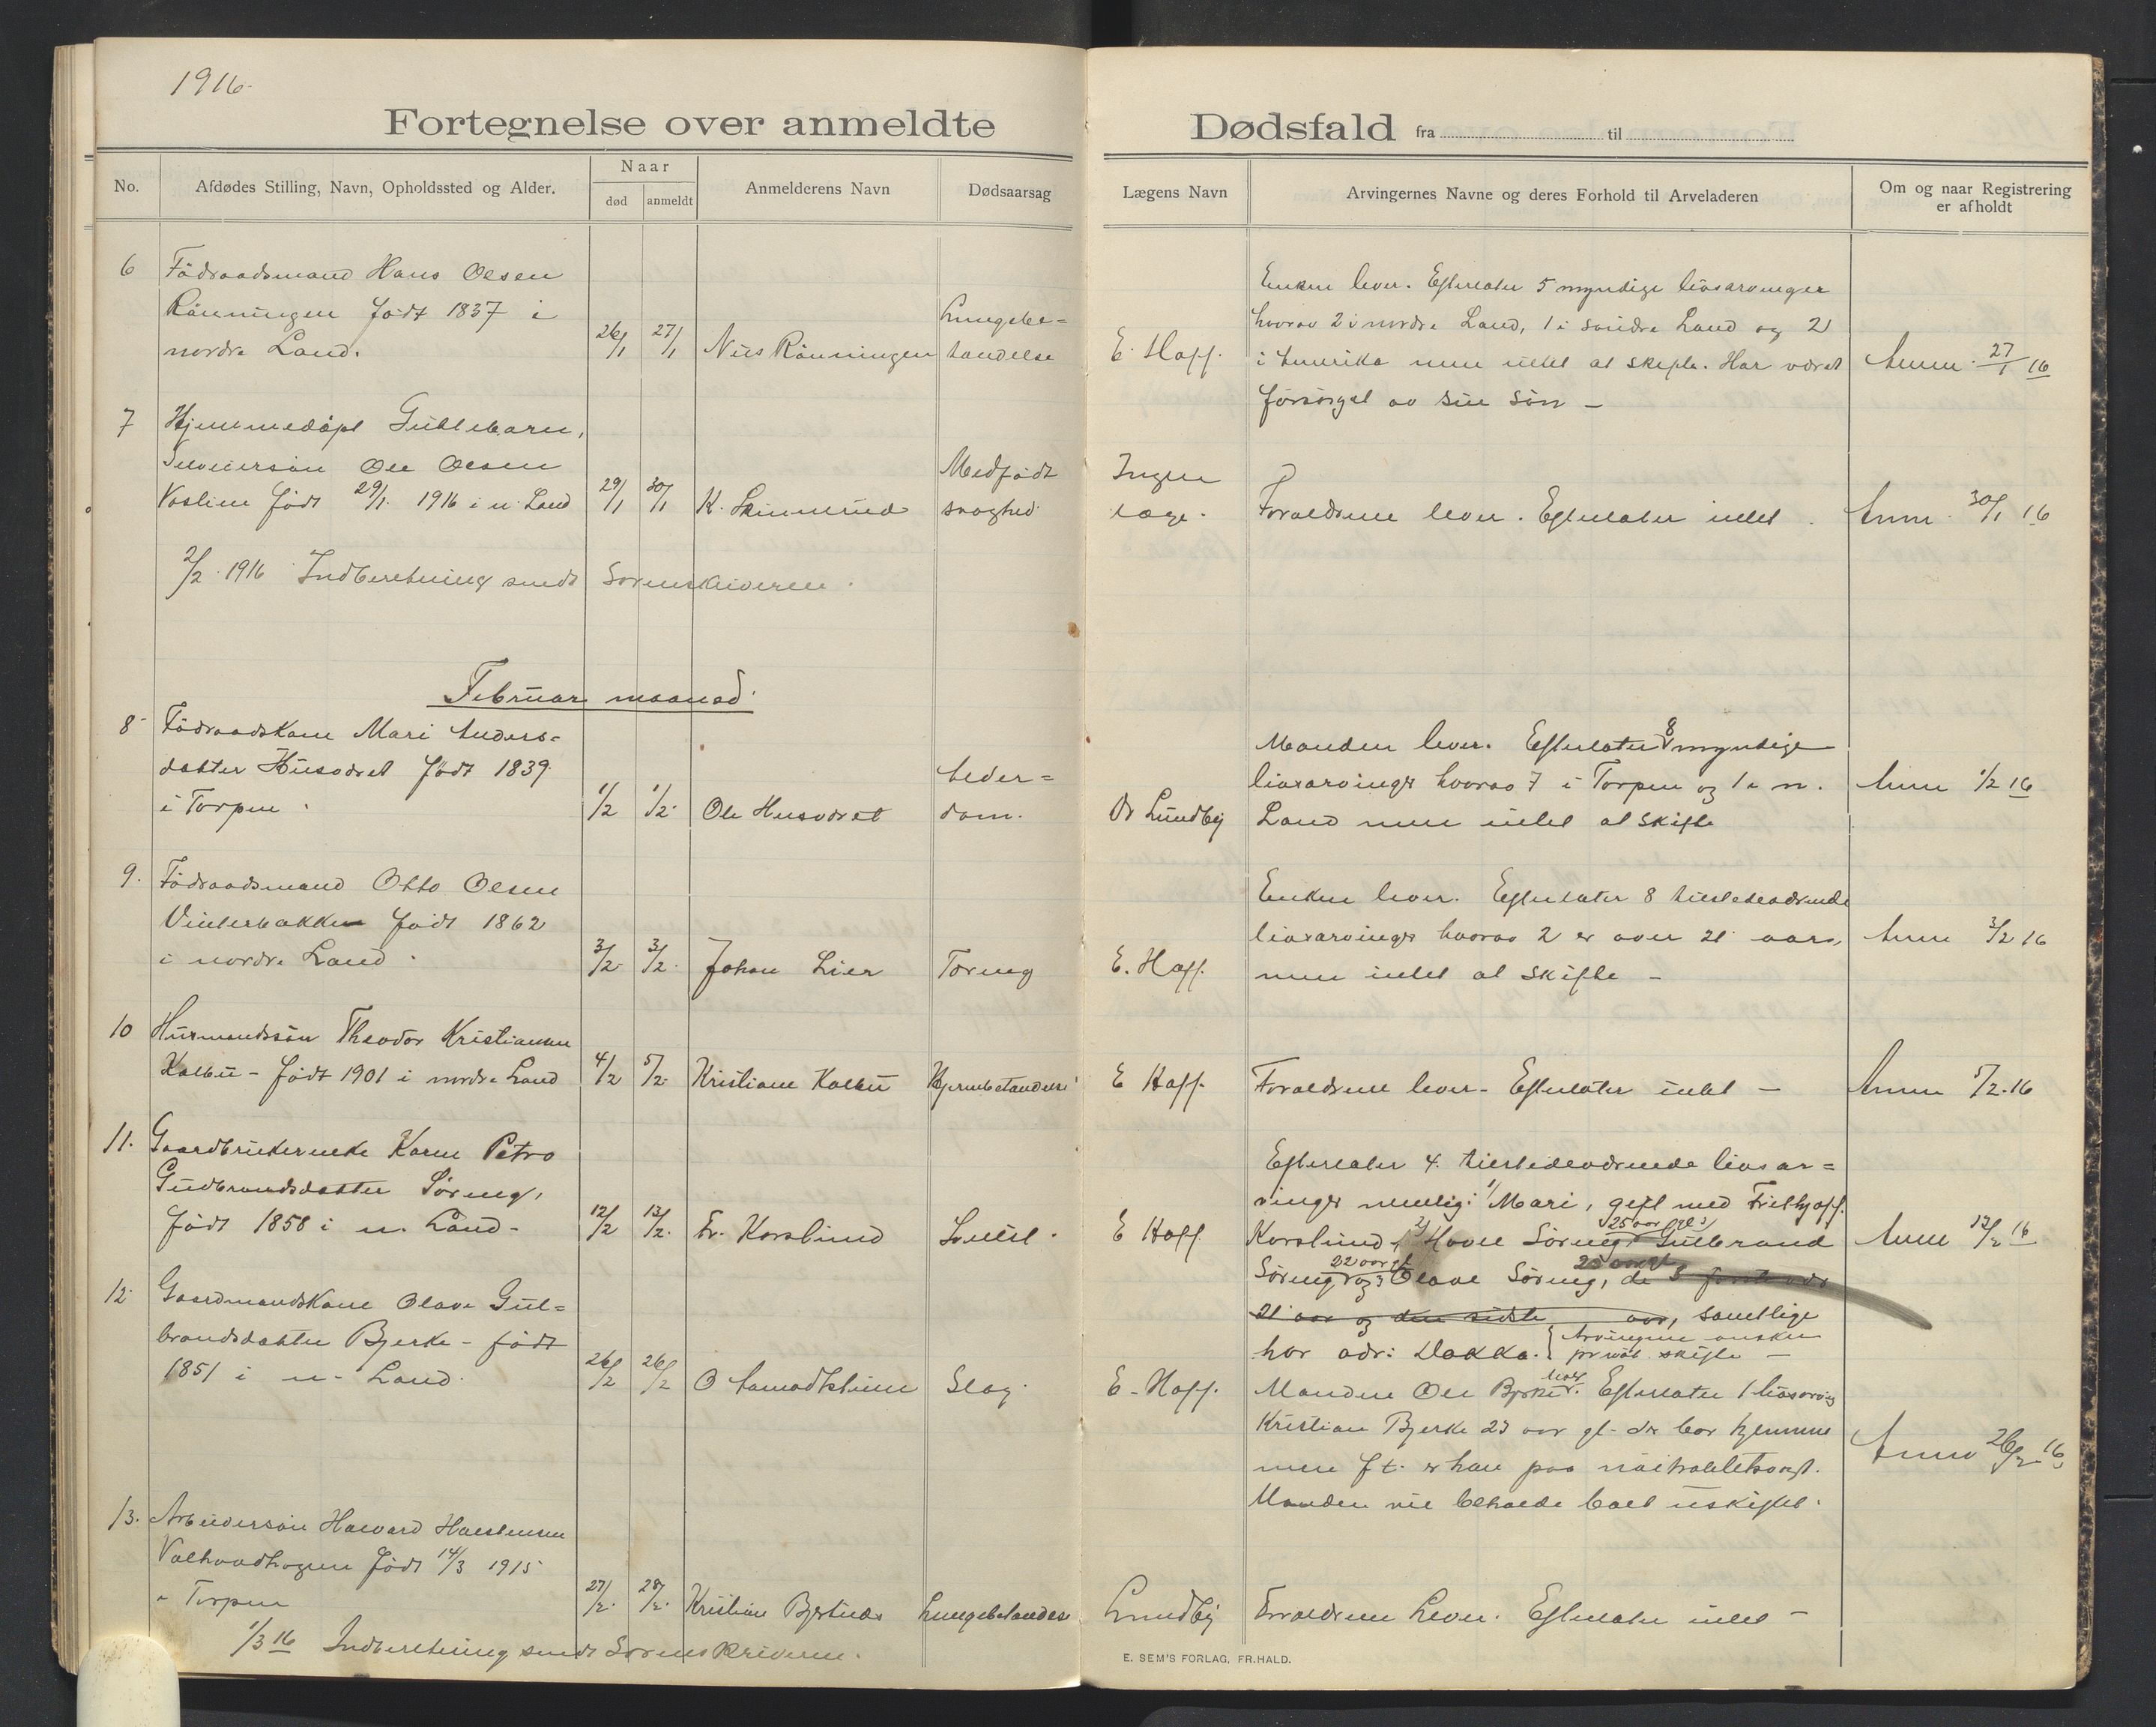 1916.
Fortegnelse over anmeldte Dødsfald fra til
No.
Afdødes Stilling, Navn, Opholdssted og Alder.
Naar
død
anmeldt
Anmelderens Navn
Dødsaarsag
Lægens Navn
Arvingernes Navne og deres Forhold til Arveladeren
Om og naar Registrering
er afholdt
6
Födraadsmand Hans Olsen
Rönningen födt 1837 i
nordre Land.
26/1
27/1
Nils Rönningen
Lungebe=
tændelse
E. Hoff.
Enken lever. Efterlater 5 myndige livsarvinger
hvorav 2 i nordre Land, 1 i söndre Land og 2
i Amerika men intet at skifte. Har været
forsörget av sin sön –
Anm. 27/1 16
7
Hjemmedöpt Guttebarn,
Ole Olsen
födt 29/1 1916 i n. Land
29/1
30/1
K. Skinnerud
Medfödt
svaghed.
Ingen
læge.
Foreldrene lever. Efterlater intet.
Anm. 30/1 16
2/2 1916 Indberetning sendt Sorenskriveren.
Februar maaned.
8
Födraadskone Mari Anders=
datter Husværet födt 1839
i Torpen.
1/2
1/2.
Ole Husværet
Alder=
dom.
Dr Lundby
Manden lever. Efterlater 8 myndige
livsarvinger hvorav 7 i Torpen og 1 i n.
Land men intet at skifte
Anm 1/2 16
9.
Födraadsmand Otto Olsen
Vinterbakken födt 1862
i nordre Land.
3/2.
3/2.
Johan Lier
Tæring
E. Hoff.
Enken lever. Efterlater 8 tilstedeværende
livsarvinger hvorav 2 er over 21 aar,
men intet at skifte –
Anm 3/2 16
10
Husmandssön Theodor Kristiansen
Kalbu – födt 1901 i nordre Land
4/2
5/2.
Kristian Kalbu
E Hoff.
Foreldrene lever. Efterlater intet –
Anm 5/2. 16
11.
Gaardbrukerenke Karen Petra
Gudbrandsdatter Söreng,
födt 1858 i n. Land –
12/2
13/2.
Fr. Korslund
E Hoff
Efterlater 4 tilstedeværende livsar=
vinger nemlig: 1/ Mari, gift med Frithjoff
Korslund, 2/ Söreng 25 aar gl 3/ Gulbrand
Söreng 22 aar gl og Olave Söreng, de 3 første over
21 aar og den sidste aar, samtlige
har adr: Dokka. { Arvingerne ønsker
privat skifte –
Anm 13/2 16
12
Gaardmandskone Olave Gul=
brandsdatter Bjerke – födt
1851 i n. Land.
26/2
26/2
Slag.
E. Hoff.
Manden Ole Bjerke lever. Efterlater 1 livsarving
Kristian Bjerke 23 aar gl. der bor hjemme
men f.t. er han paa nöitralitetsvagt.
Manden vil beholde boet uskiftet.
Anm 26/2 16
13.
Arbeidersön Halvard Halstensen
födt 14/3 1915
i Torpen
27/2.
28/2.
Kristian Bjertnæs
Lungebetændelse
Lundby
Foreldrene lever. Efterlater intet –
1/3 16 Indberetning sendt Sorenskriveren.
E. SEM'S FORLAG, FR.HALD.